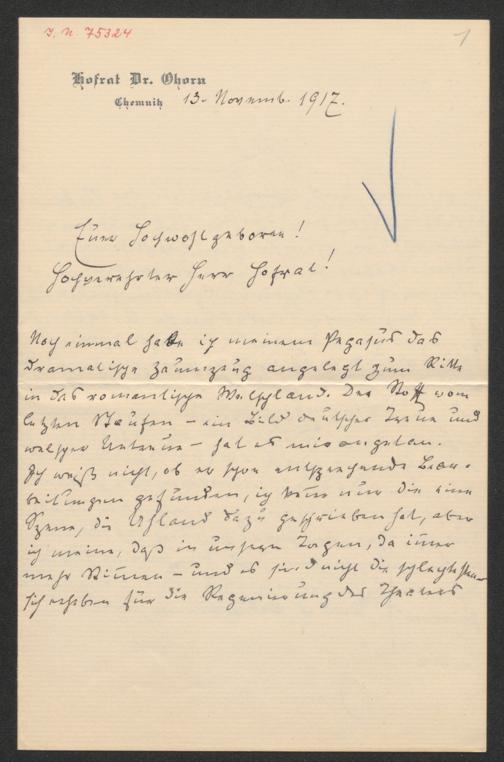 J. N. 75324
1
Hofrat Dr. Ohorn
Chemnitz 13. Novemb. 1917.
Euer Hochwohlgeboren!
Hochverehrter Herr Hofrat!
Noch einmal habe ich meinem Pegasus das
dramatische Zaumzeug angelegt zum Ritte
in das romantische Welschland. Der Stoff vom
letzten Staufen – ein Bild deutscher Treue und
welscher Untreue – hat es mir angetan.
Ich weiß nicht, ob er schon entsprechende Bear-
beitungen gefunden, ich kenne nur die eine
Szene, die Uhland dazu geschrieben hat, aber
ich meine, daß in unseren Tagen, da immer
mehr Stimen – und es sind nicht die schlechtesten
sich erheben für die Regenerierung des Theaters